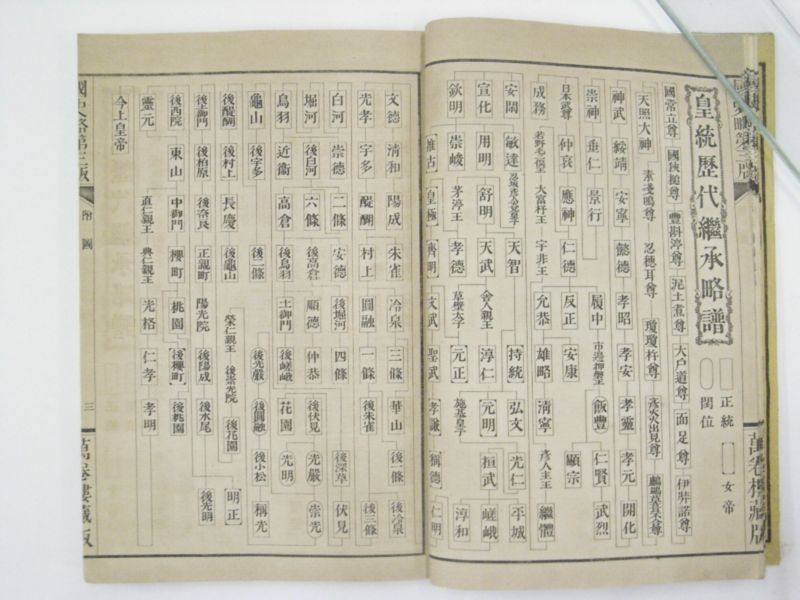 皇統歷代繼承略譜
正統
女帝
閏位
國常立尊 國狹槌尊 豐斟渟尊 泥土煮尊 大戶道尊 面足尊 伊弉諾尊
天照大神 素戔嗚尊 忍穗耳尊 瓊瓊杵尊 彥火火出見尊
神武 綏靖 安寧 懿德 孝昭 孝安 孝靈 孝元 開化
崇神 垂仁 景行 履中 市邊押磐王 飯豐 仁賢 武烈
日本武尊 仲哀 應神 仁德 反正 安康 顯宗
成務 大富杵王 宇非王 允恭 雄略 清寧 彥人主王 繼體
安閑 敏達 天智 持統 弘文 光仁 平城
宣化 用明 舒明 天武 舍人親王 淳仁 元明 桓武 嵯峨
欽明 崇峻 茅渟王 孝德 草壁太子 元正 施基皇子 淳和
推古 皇極 齊明 文武 聖武 孝謙 稱德 仁明
文德 清和 陽成 朱雀 冷泉 三條 華山 後一條 後冷泉
光孝 宇多 醍醐 村上 圓融 一條 後朱雀 後三條
白河 崇德 二條 安德 後堀河 四條 後深草 伏見
堀河 後白河 六條 後高倉 順德 仲恭 後伏見 光嚴 崇光
鳥羽 近衞 高倉 後鳥羽 土御門 後嵯峨 花園 光明
龜山 後宇多 後二條 後光嚴 後圓融 後小松 稱光
後醍醐 後村上 長慶 後龜山 榮仁親王 後崇光院 後花園
後土御門 後柏原 後奈良 正親町 陽光院 後陽成 後水尾 明正 後光明
後西院 東山 中御門 櫻町 桃園 後櫻町 後桃園
靈元 直仁親王 典仁親王 光格 仁孝 孝明
今上皇帝
國史略第三版
附圖
三
萬卷樓藏版
萬卷樓藏版